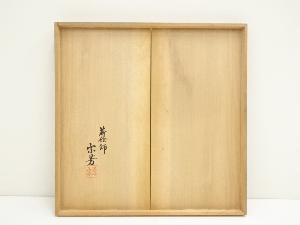 蒔絵師
宗芳